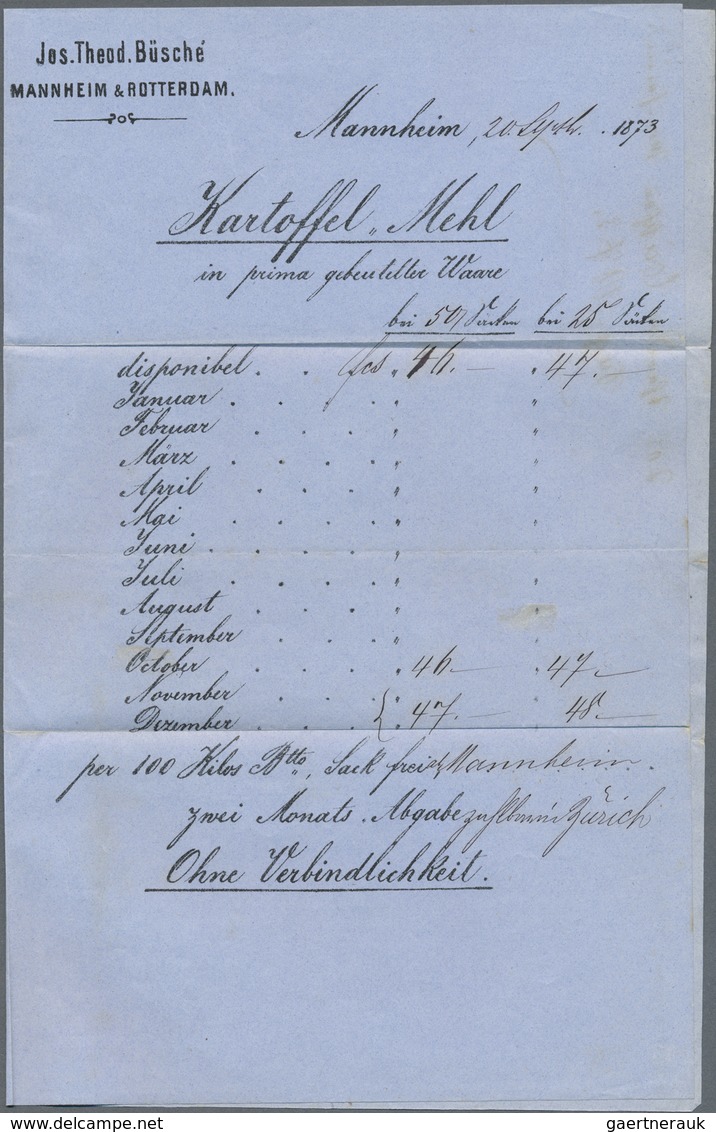 Jos. Theod. Büsché
MANNHEIM & ROTTERDAM.
Mannheim, 20 Septbr. 1873
Kartoffel „ Mehl
in prima gebeutelter Waare
bei 50 Säcken bei 25 Säcken
disponibel . . fcs „ 46. — „ 47. —
Januar . . . . „ „
Februar . . . . „ „
März . . . . „ „
April . . . . „ „
Mai . . . . „ „
Juni . . . . . „ „
Juli . . . . „ „
August . . . . „ „
September . . . . „ „
October . . . . „ 46. — „ 47. —
November . . . „
Dezember . . . . { „ 47. — 48. —
per 100 Kilos Btto, Sack frei Mannheim.
zwei Monats . Abgabe zahlbar in Zürich
Ohne Verbindlichkeit.
gaertnerauk